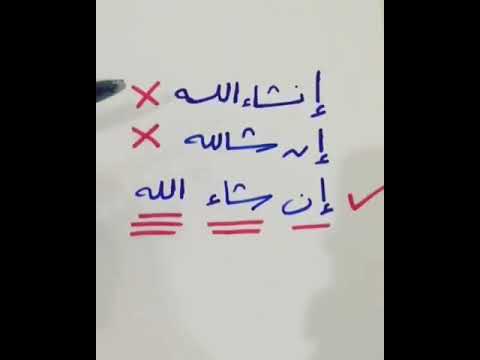 إنشاءالله
إن شالله
إن شاء الله